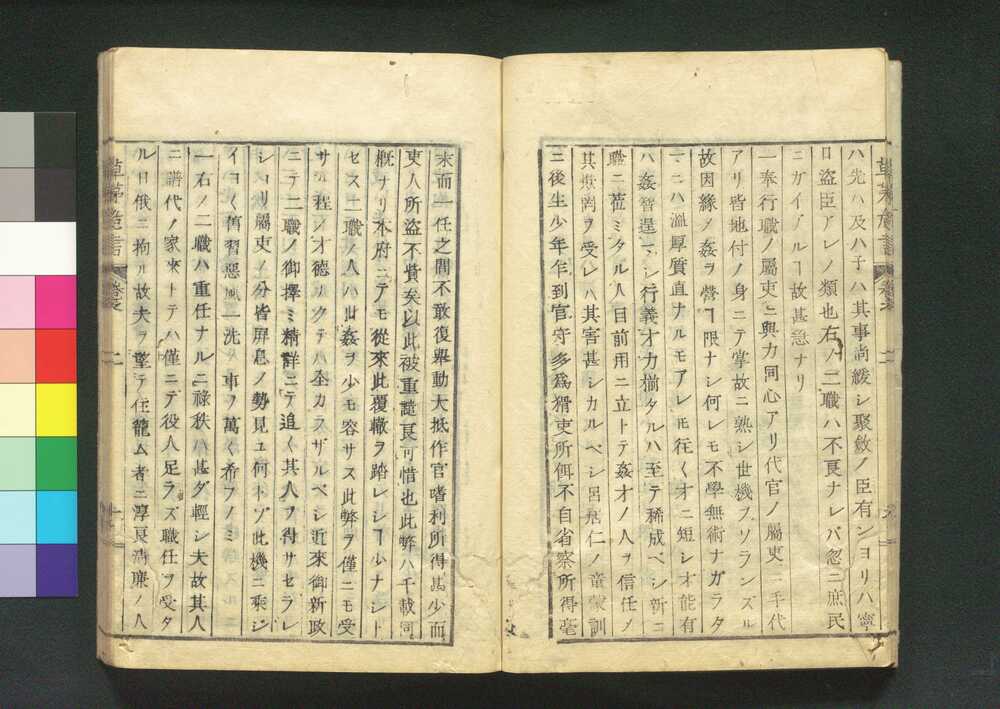 草茅危言
ハ先ハ及ハ子ハ其事尚緩シ聚斂ノ臣有ンヨリハ寧
ロ盗臣アレノ類也右ノ二職ハ不良ナレバ忽ニ庶民
ニガイアルヿ故甚急ナリ
一奉行職ノ屬吏ニ與力同心アリ代官ノ屬吏ニ手代
アリ皆地付ノ身ニテ掌故ニ熟シ世機ヲソランズル
故因緣ノ姦ヲ營ヿ限ナシ何レモ不學無術ナガラタ
ニハ溫厚質直ナルモアレモ往く才ニ短レオ能有
ハ姦智逞マシ行義才力揃タルハ至テ稀成ベシ新ニ
職ニ莅ミタル人目前用ニ立トテ姦才ノ人ヲ信任ノ
其欺罔ヲ受レハ其害甚シカルベシ呂居仁ノ童蒙訓
ニ後生少年乍到官守多爲猾吏所餌不自省察所得毫
末而一任之間不敢復舉動大抵作官嗜利所得甚少而
吏人所盜不貲矣以此被重譴良可惜也此弊ハ千載同
概ナリ本府ニテモ從來此覆轍ヲ踏レシヿ少ナシト
セス二職ノ人ハ此姦ヲ少モ容サス此弊ヲ僅ニモ受
サル程ノ才德ナクテハ全カラザルベシ近來御新政
ニテ二職ノ御擇ミ精詳ニテ追く其人ヲ得サセラレ
シヨリ屬吏ノ分皆屏息ノ勢見ユ何トゾ此機ニ乘シ
イヨく舊習惡風一洗ノ事ヲ萬く希フノミ
一右ノ二職ハ重任ナルニ祿秩ハ甚ダ輕シ夫故其人
ニ譜代ノ家來トテハ僅ニテ役人足ラズ職任ヲ受タ
ル日俄ニ拘ル故夫ヲ望テ任籠ム者ニ淳良淸廉ノ人
草茅危言
二